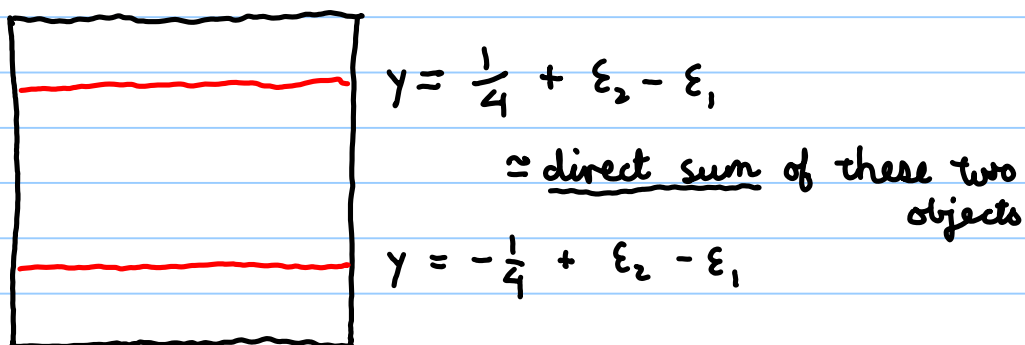 y = 1/4 + ε₂ - ε₁
≃ direct sum of these two
objects
y = -1/4 + ε₂ - ε₁